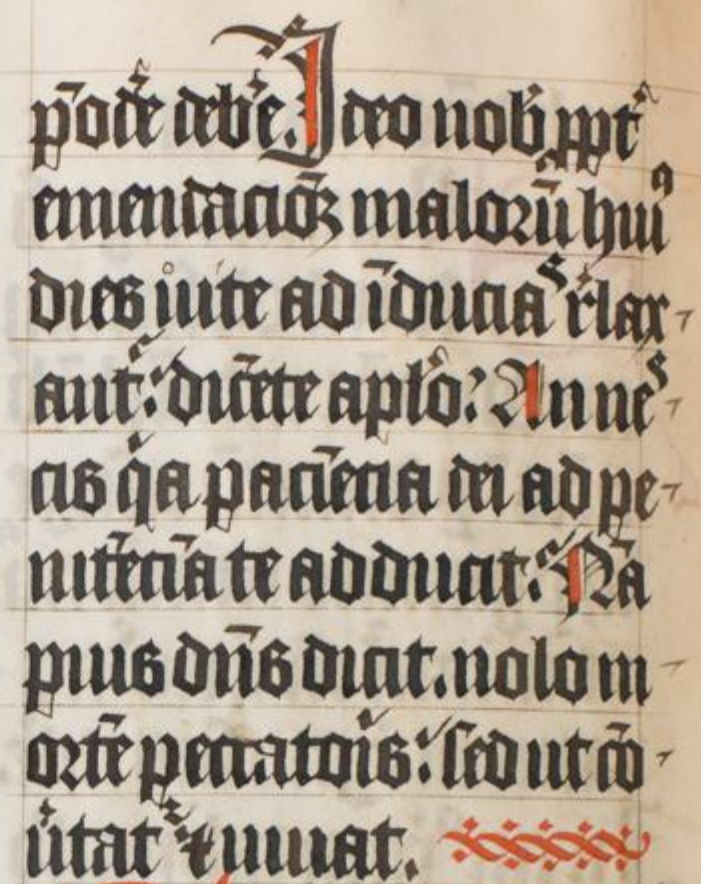 p̄odēe deb̾e. Ideo nob̾ ppt̾
emendacōꝫ maloꝝū huiꝰ
dies uite ad īducias r̾lax-
ant᷑: dicēte aplo̾? An nes-
cis q̾a paciēcia dei ad pe-
nitēciā te adducit: Nā
pius dn̄s dicit. nolo m-
ortē peccatoris: sed ut cō-
u̾tat᷑ ⁊ uiuat.